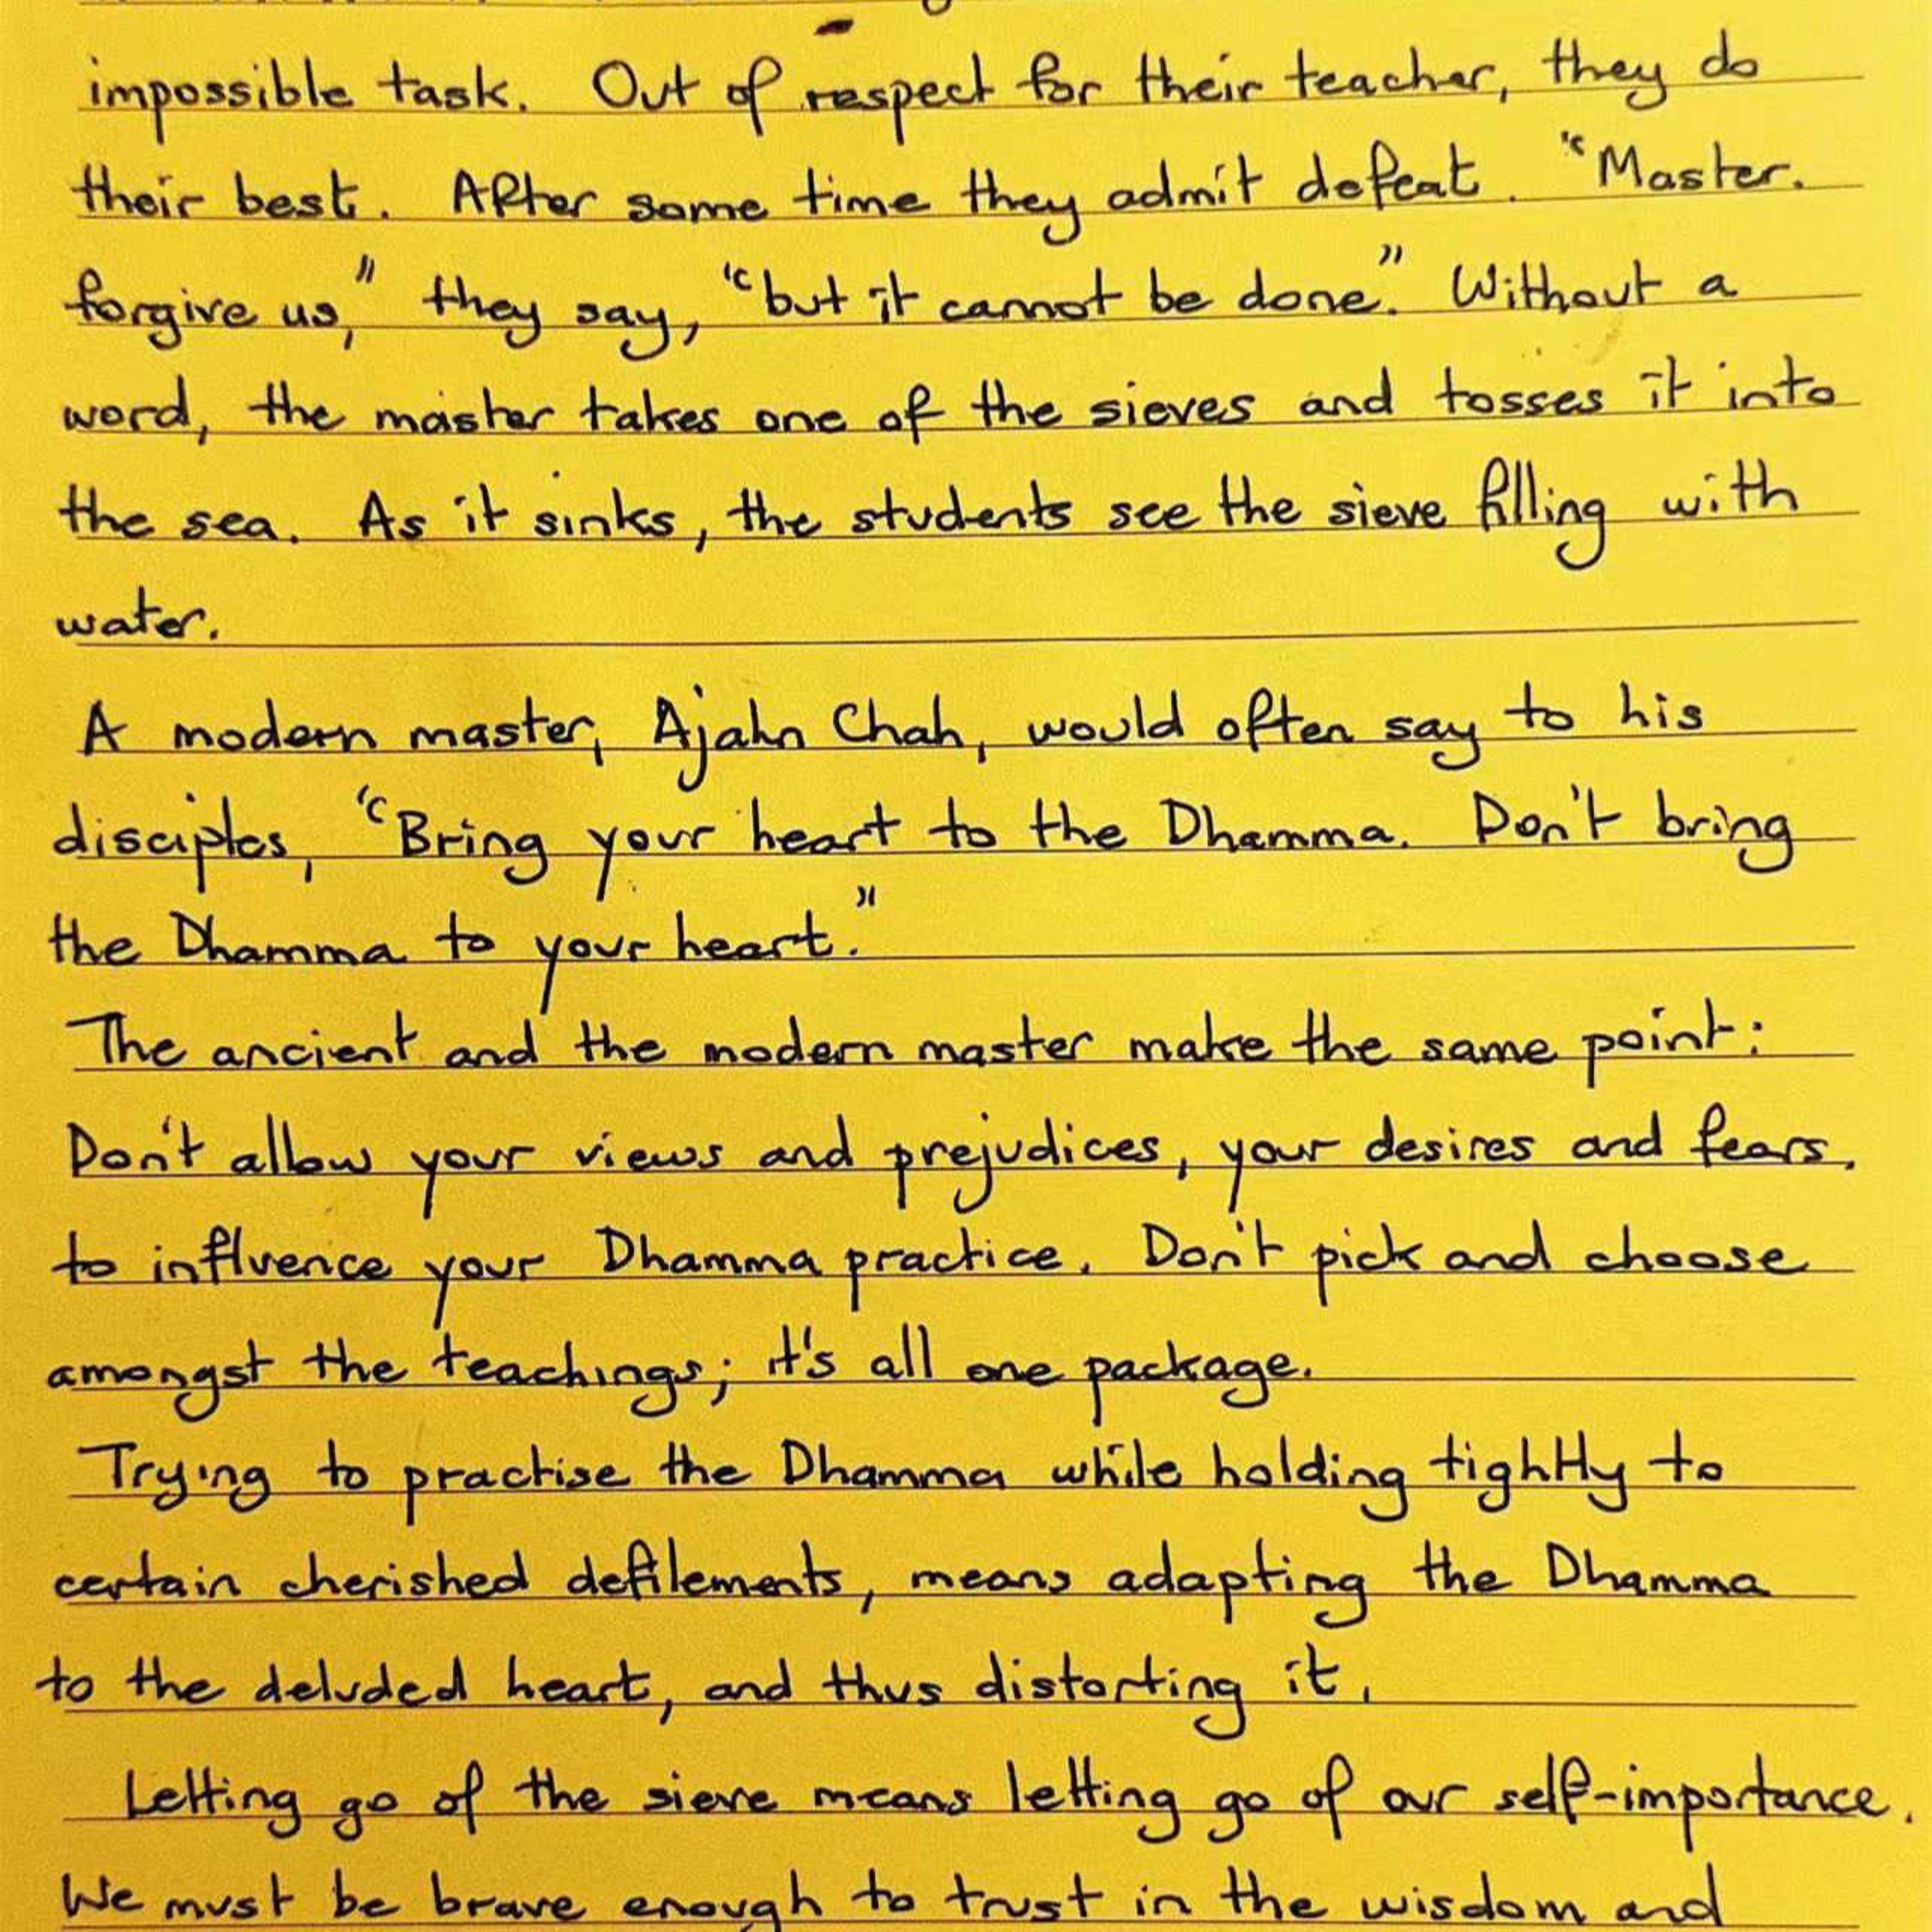 impossible task. Out of respect for their teacher, they do
their best. After some time they admit defeat. "Master.
forgive us," they say, "but it cannot be done." Without a
word, the master takes one of the sieves and tosses it into
the sea. As it sinks, the students see the sieve filling with
water.
A modern master, Ajahn Chah, would often say to his
disciples, "Bring your heart to the Dhamma. Don't bring
the Dhamma to your heart."
The ancient and the modern master make the same point:
Don't allow your views and prejudices, your desires and fears,
to influence your Dhamma practice. Don't pick and choose
amongst the teachings; it's all one package.
Trying to practise the Dhamma while holding tightly to
certain cherished defilements, means adapting the Dhamma
to the deluded heart, and thus distorting it.
Letting go of the sieve means letting go of our self-importance.
We must be brave enough to trust in the wisdom and